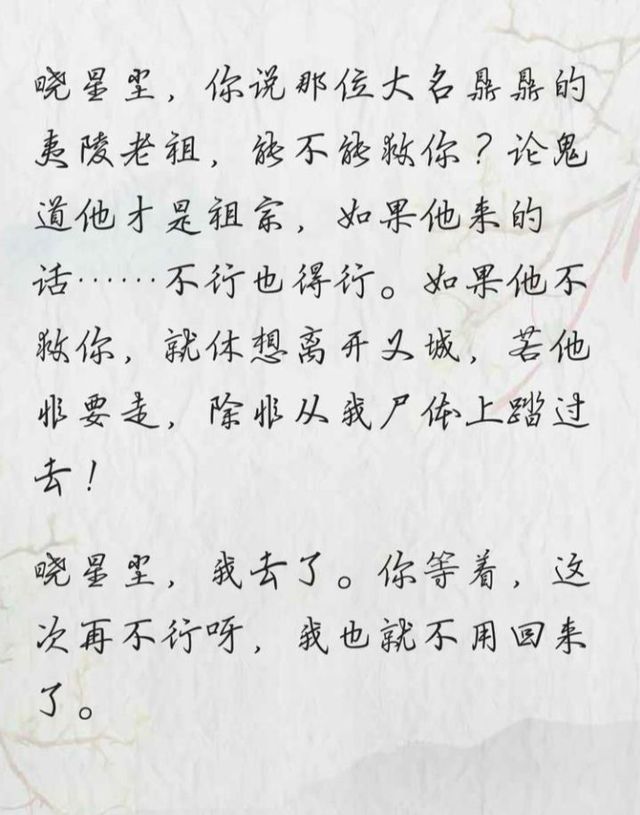 晓星尘，你说那位大名鼎鼎的
夷陵老祖，能不能救你？论鬼
道他才是祖宗，如果他来的
话……不行也得行。如果他不
救你，就休想离开义城，若他
非要走，除非从我尸体上踏过
去！
晓星尘，我去了。你等着，这
次再不行呀，我也就不用回来
了。